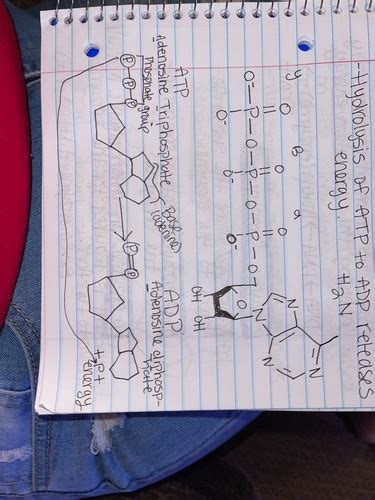 -Hydrolysis of ATP to ADP releases
energy.
H₂N
γ B a
O O O
O⁻-P-O-P-O-P-O
O⁻ O⁻ O⁻
N N
N N
O
OH OH
ATP
Adenosine Triphosphate
Phosphate group
Base
(adenine)
P-P-P
ADP
Adenosine diphosp-
P-P
+P+
energy